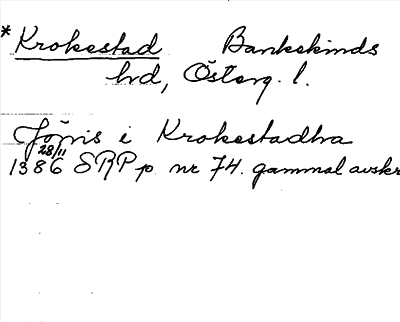 * Krokestad Bankekinds
hd, Österg. l.
Jönis i Krokestadha
28/11
1386 SRP p nr 74. gammal avskr